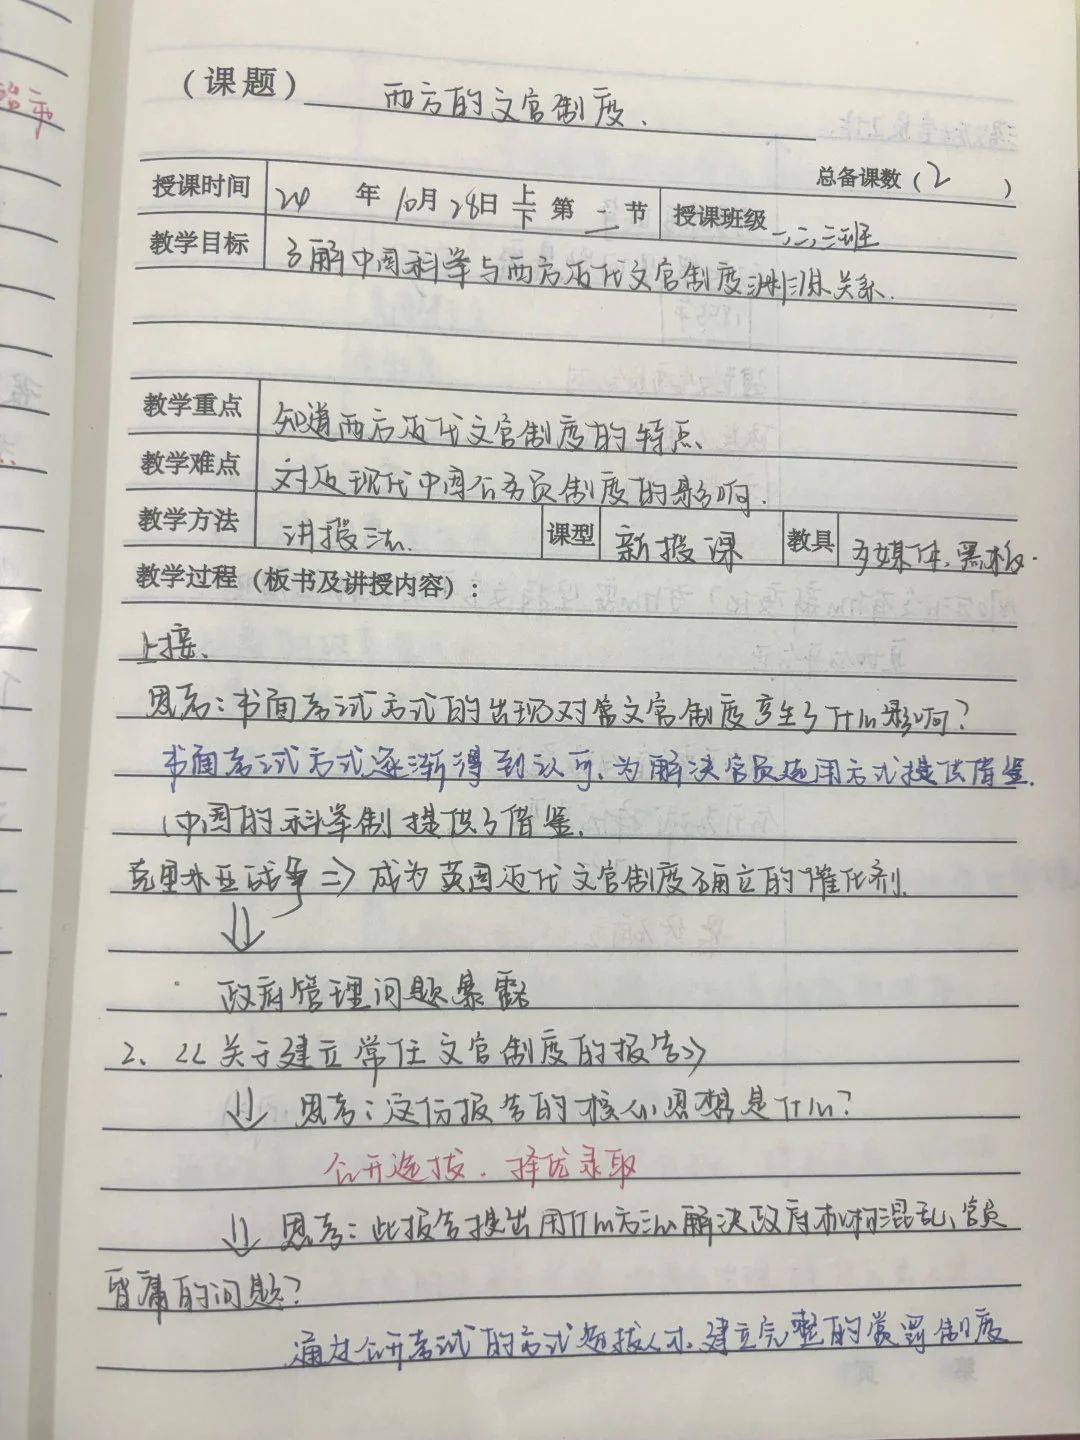 （课题） 西方的文官制度.
总备课数（2 ）
授课时间 24 年 10月 28日 上 下 第 一 节 授课班级 一,二,三班
教学目标 了解中国科举与西方近代文官制度渊源关系.
教学重点 知道西方近代文官制度的特点
教学难点 对近现代中国公务员制度的影响.
教学方法 讲授法. 课型 新授课 教具 多媒体、黑板.
教学过程（板书及讲授内容）：
上接、
思考：书面考试方式的出现对常文官制度产生了什么影响？
书面考试方式逐渐得到认可，为解决官员选用方式提供借鉴.
（中国的科举制提供了借鉴.
克里木亚战争 => 成为英国近代文官制度确立的催化剂.
⇓
政府管理问题暴露
2、《关于建立常任文官制度的报告》
⇓ 思考：这份报告的核心思想是什么？
公开选拔，择优录取
⇓ 思考：此报告提出用什么方法解决政府机构混乱、官员
昏庸的问题？
通过公开考试的方式选拔人才，建立完整的赏罚制度